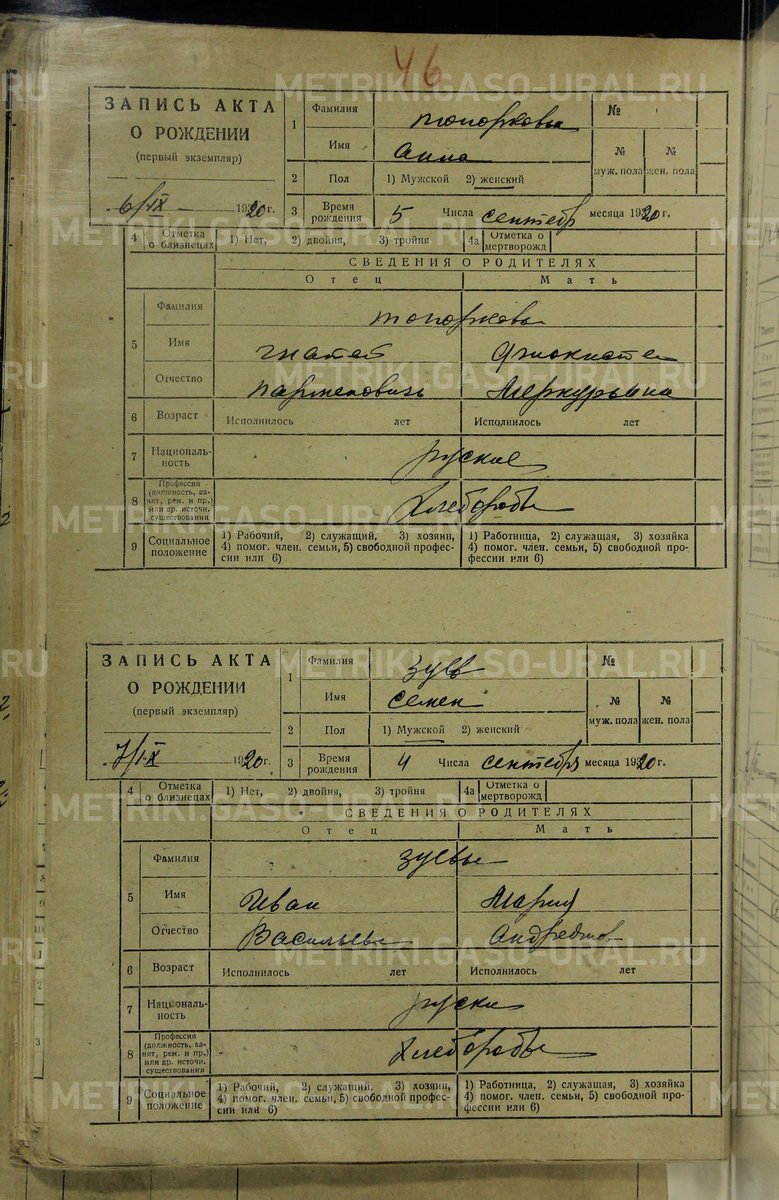 46
ЗАПИСЬ АКТА
О РОЖДЕНИИ
(первый экземпляр)
6/IX 1920 г.
1 Фамилия топорковы №
Имя анна № муж. пола № жен. пола
2 Пол 1) Мужской 2) женский
3 Время рождения 5 Числа сентебр месяца 1920 г.
4 Отметка о близнецах 1) Нет, 2) двойня, 3) тройня 4а Отметка о мертворожд
СВЕДЕНИЯ О РОДИТЕЛЯХ
Отец Мать
5 Фамилия топорковы
Имя
Отчество парменовичь Меркурьяна
6 Возраст Исполнилось лет Исполнилось лет
7 Националь-
ность руские
8 Профессия
(должность, за-
нят, рем. и пр.)
или др. источн.
существования
Хлеборобы
9 Социальное
положение
1) Рабочий, 2) служащий, 3) хозяин,
4) помог. член. семьи, 5) свободной профес-
сии или 6)
1) Работница, 2) служащая, 3) хозяйка
4) помог. член. семьи, 5) свободной про-
фессии или 6)
ЗАПИСЬ АКТА
О РОЖДЕНИИ
(первый экземпляр)
7/IX 1920 г.
1 Фамилия зуев №
Имя семен № муж. пола № жен. пола
2 Пол 1) Мужской 2) женский
3 Время рождения 4 Числа сентебря месяца 1920 г.
4 Отметка о близнецах 1) Нет, 2) двойня, 3) тройня 4а Отметка о мертворожд
СВЕДЕНИЯ О РОДИТЕЛЯХ
Отец Мать
5 Фамилия зуевы
Имя Иван Мария
Отчество Васильевь
6 Возраст Исполнилось лет Исполнилось лет
7 Националь-
ность руски
8 Профессия
(должность, за-
нят, рем. и пр.)
или др. источн.
существования
Хлеборобы
9 Социальное
положение
1) Рабочий, 2) служащий, 3) хозяин,
4) помог. член. семьи, 5) свободной профес-
сии или 6)
1) Работница, 2) служащая, 3) хозяйка
4) помог. член. семьи, 5) свободной про-
фессии или 6)
METRIKI.GASO-URAL.RU